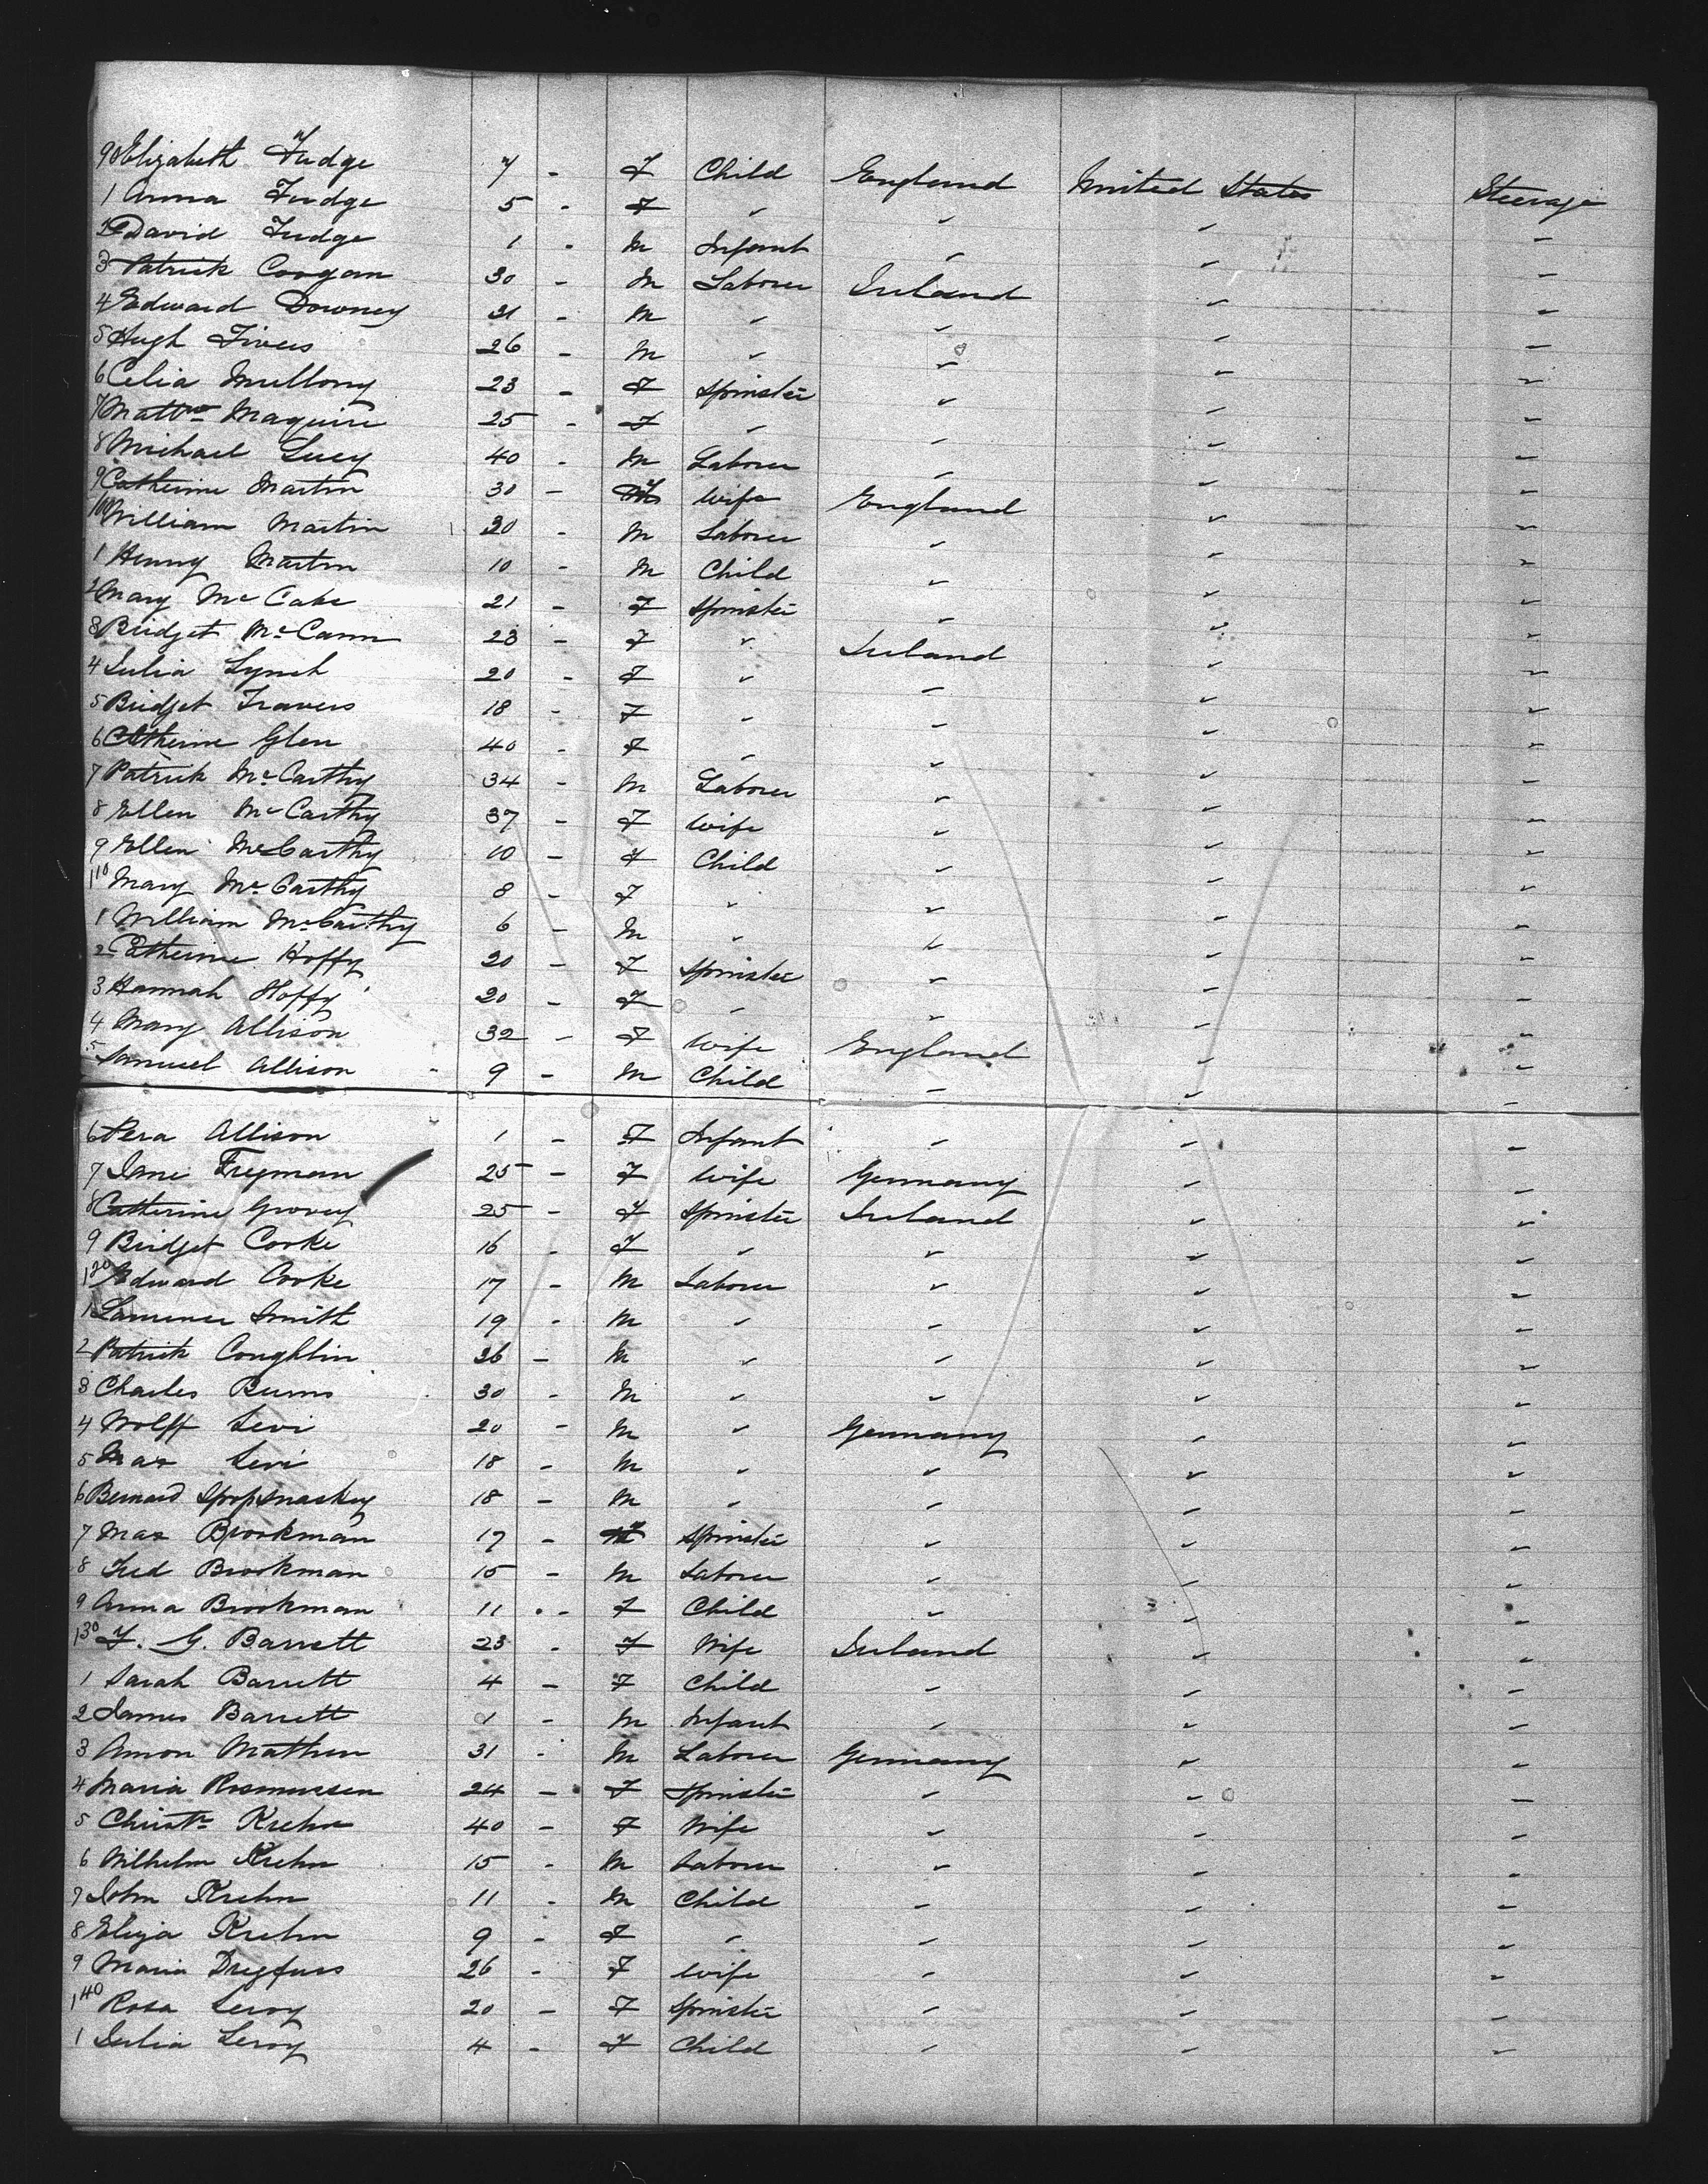 90 Elizabeth Fudge 7 - F Child England United States Steerage
1 Anna Fudge 5 - F " " " "
2 David Fudge 1 - M Infant " " "
3 Patrick Coogan 30 - M Laborer Ireland " "
4 Edward Downey 21 - M " " " "
5 Hugh Tivers 26 - M " " " "
6 Celia Mullony 23 - F Spinster " " "
7 Mattw Maguire 25 - F " " " "
8 Michael Lucy 40 - M Laborer " " "
9 Catherine Martin 30 - F Wife England " "
100 William Martin 30 - M Laborer " " "
1 Henry Martin 10 - M Child " " "
2 Mary McCabe 21 - F Spinster " " "
3 Bridget McCann 23 - F " Ireland " "
4 Julia Lynch 20 - F " " " "
5 Bridget Travers 18 - F " " " "
6 Catherine Glen 40 - F " " " "
7 Patrick McCarthy 34 - M Laborer " " "
8 Ellen McCarthy 37 - F Wife " " "
9 Ellen McCarthy 10 - F Child " " "
110 Mary McCarthy 8 - F " " " "
1 William McCarthy 6 - M " " " "
2 Catherine Hoffy 20 - F Spinster " " "
3 Hannah Hoffy 20 - F " " " "
4 Mary Allison 32 - F Wife England " "
5 Samuel Allison 9 - M Child " " "
6 Allison 1 - F Infant " " "
7 Jane Freyman 25 - F Wife Germany " "
8 Catherine Grovey 25 - F Spinster Ireland " "
9 Bridget Cooke 16 - F " " " "
120 Edward Cooke 17 - M Laborer " " "
1 Lawrence Smith 19 - M " " " "
2 Patrick Coughlin 26 - M " " " "
3 Charles Burns 30 - M " " " "
4 Wolff Levi 20 - M " Germany " "
5 Max Levi 18 - M " " " "
6 Bernard 18 - M " " " "
7 Max Brookman 17 - F Spinster " " "
8 Fred Brookman 15 - M Laborer " " "
9 Anna Brookman 11 - F Child " " "
130 F. G. Barrett 23 - F Wife Ireland " "
1 Sarah Barrett 4 - F Child " " "
2 James Barrett 1 - M Infant " " "
3 Amon Mathen 31 - M Laborer Germany " "
4 Maria Rasmussen 24 - F Spinster " " "
5 Christn Krehn 40 - F Wife " " "
6 Wilhelm Krehn 15 - M Laborer " " "
7 John Krehn 11 - M Child " " "
8 Eliza Krehn 9 - F " " " "
9 Maria Dreyfuss 26 - F Wife " " "
140 Rosa Leroy 20 - F Spinster " " "
1 Julia Leroy 4 - F Child " " "